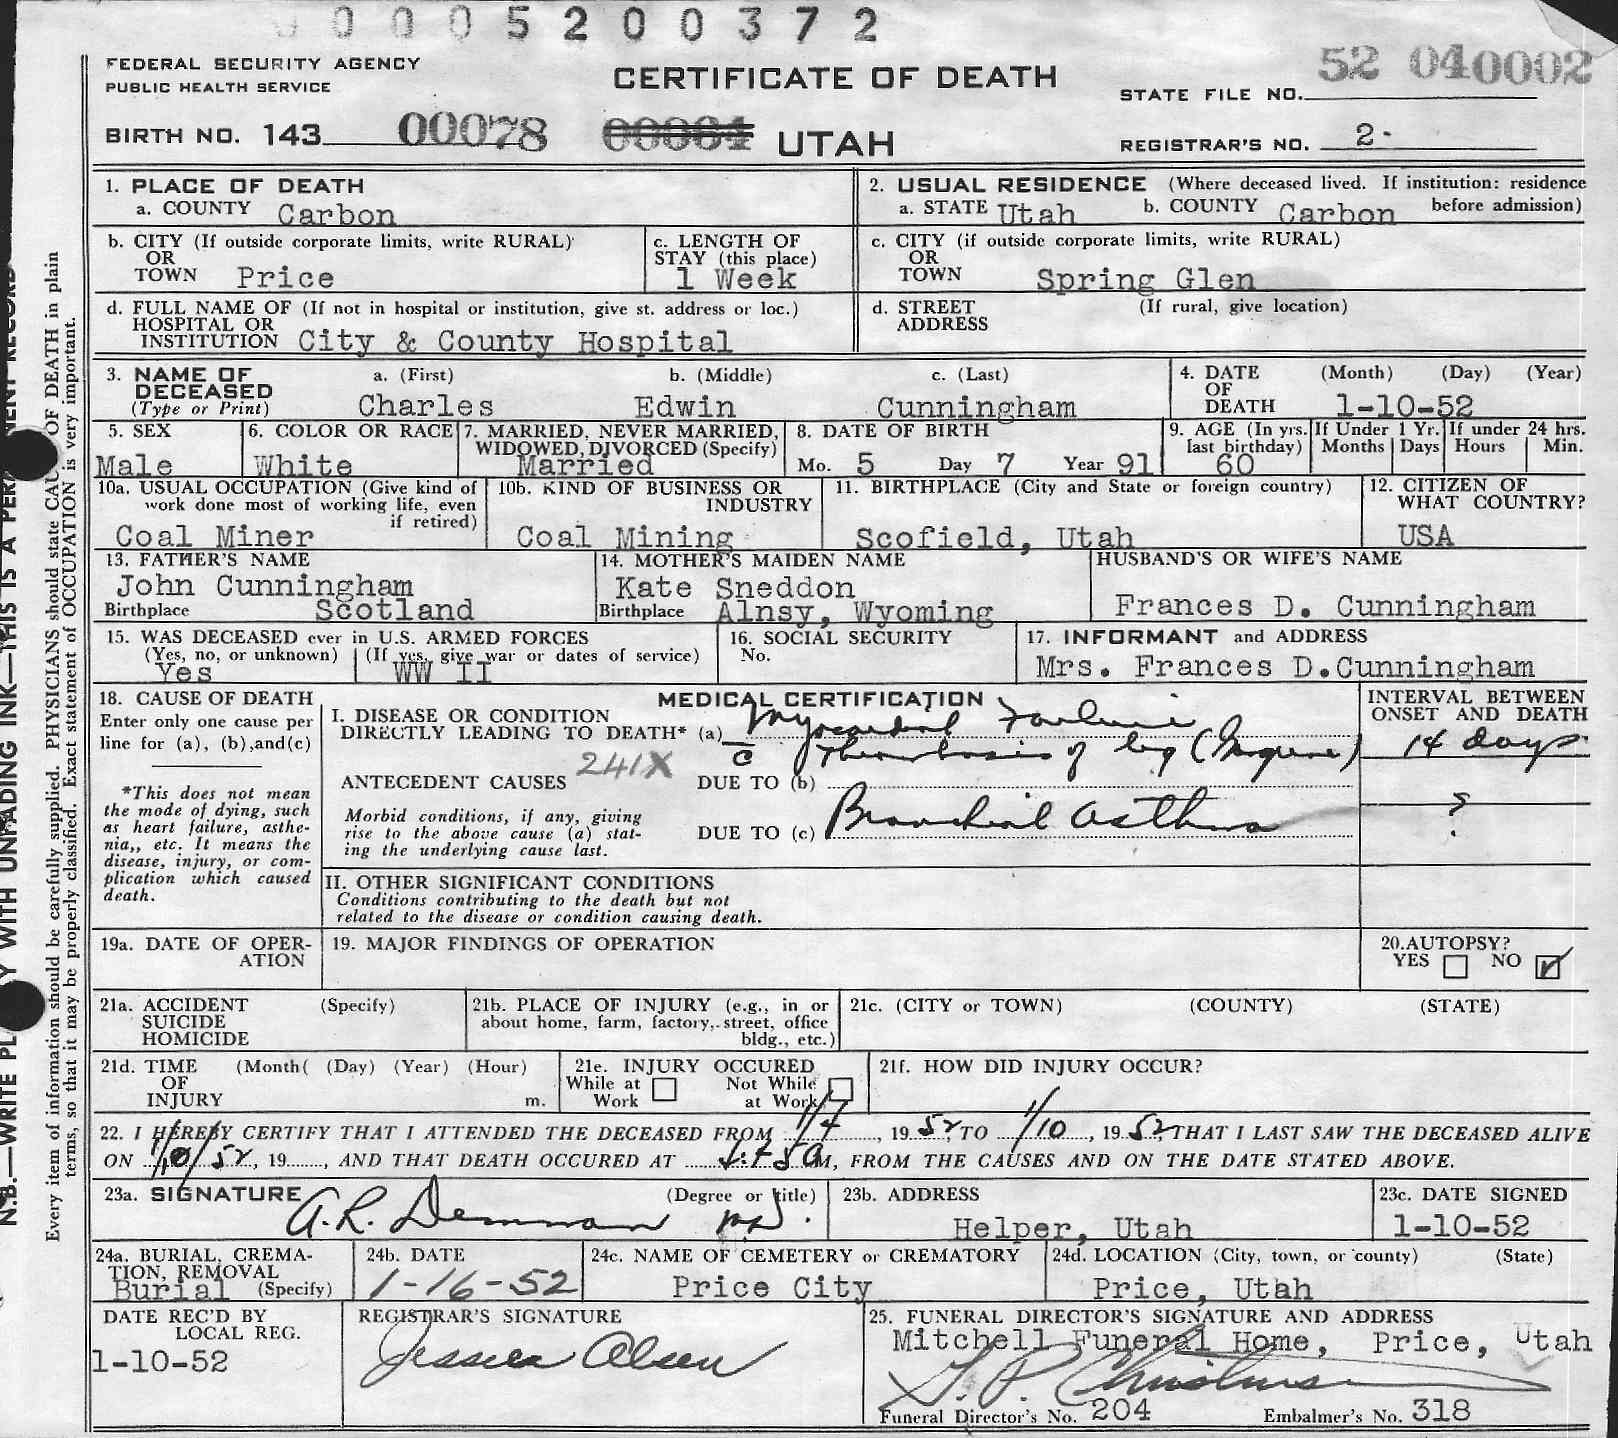 0 0 0 5 2 0 0 3 7 2
FEDERAL SECURITY AGENCY
PUBLIC HEALTH SERVICE
CERTIFICATE OF DEATH
52 040002
STATE FILE NO.
BIRTH NO. 143 00078 UTAH
REGISTRAR'S NO. 2
1. PLACE OF DEATH
a. COUNTY Carbon
2. USUAL RESIDENCE (Where deceased lived. If institution: residence before admission)
a. STATE Utah b. COUNTY Carbon
b. CITY (If outside corporate limits, write RURAL)
OR
TOWN Price
c. LENGTH OF
STAY (this place)
1 Week
c. CITY (if outside corporate limits, write RURAL)
OR
TOWN Spring Glen
d. FULL NAME OF (If not in hospital or institution, give st. address or loc.)
HOSPITAL OR
INSTITUTION City & County Hospital
d. STREET (If rural, give location)
ADDRESS
3. NAME OF a. (First) b. (Middle) c. (Last)
DECEASED
(Type or Print) Charles Edwin Cunningham
4. DATE (Month) (Day) (Year)
OF
DEATH 1-10-52
5. SEX
Male
6. COLOR OR RACE
White
7. MARRIED, NEVER MARRIED,
WIDOWED, DIVORCED (Specify)
Married
8. DATE OF BIRTH
Mo. 5 Day 7 Year 91
9. AGE (In yrs. last birthday)
60
If Under 1 Yr.
Months Days
If under 24 hrs.
Hours Min.
10a. USUAL OCCUPATION (Give kind of
work done most of working life, even
if retired)
Coal Miner
10b. KIND OF BUSINESS OR
INDUSTRY
Coal Mining
11. BIRTHPLACE (City and State or foreign country)
Scofield, Utah
12. CITIZEN OF
WHAT COUNTRY?
USA
13. FATHER'S NAME
John Cunningham
Birthplace Scotland
14. MOTHER'S MAIDEN NAME
Kate Sneddon
Birthplace Alnsy, Wyoming
HUSBAND'S OR WIFE'S NAME
Frances D. Cunningham
15. WAS DECEASED ever in U.S. ARMED FORCES
(Yes, no, or unknown) (If yes, give war or dates of service)
Yes WW II
16. SOCIAL SECURITY
No.
17. INFORMANT and ADDRESS
Mrs. Frances D.Cunningham
18. CAUSE OF DEATH
Enter only one cause per
line for (a), (b),and(c)
*This does not mean
the mode of dying, such
as heart failure, asthe-
nia,, etc. It means the
disease, injury, or com-
plication which caused
death.
MEDICAL CERTIFICATION
I. DISEASE OR CONDITION
DIRECTLY LEADING TO DEATH* (a) Myocardial Failure
c̄ Thrombosis of leg (Gangrene)
ANTECEDENT CAUSES 241X DUE TO (b)
Morbid conditions, if any, giving
rise to the above cause (a) stat-
ing the underlying cause last.
DUE TO (c) Bronchial asthma
INTERVAL BETWEEN
ONSET AND DEATH
14 days
?
II. OTHER SIGNIFICANT CONDITIONS
Conditions contributing to the death but not
related to the disease or condition causing death.
19a. DATE OF OPER-
ATION
19. MAJOR FINDINGS OF OPERATION
20.AUTOPSY?
YES NO
21a. ACCIDENT (Specify)
SUICIDE
HOMICIDE
21b. PLACE OF INJURY (e.g., in or
about home, farm, factory, street, office
bldg., etc.)
21c. (CITY or TOWN) (COUNTY) (STATE)
21d. TIME (Month( (Day) (Year) (Hour)
OF
INJURY m.
21e. INJURY OCCURED
While at Work Not While at Work
21f. HOW DID INJURY OCCUR?
22. I HEREBY CERTIFY THAT I ATTENDED THE DECEASED FROM 1/4, 1952, TO 1/10, 1952, THAT I LAST SAW THE DECEASED ALIVE
ON 1/10/52, 19, AND THAT DEATH OCCURED AT M, FROM THE CAUSES AND ON THE DATE STATED ABOVE.
23a. SIGNATURE (Degree or title)
A.R. Demman M.D.
23b. ADDRESS
Helper, Utah
23c. DATE SIGNED
1-10-52
24a. BURIAL, CREMA-
TION, REMOVAL
Burial (Specify)
24b. DATE
1-16-52
24c. NAME OF CEMETERY or CREMATORY
Price City
24d. LOCATION (City, town, or county) (State)
Price, Utah
DATE REC'D BY
LOCAL REG.
1-10-52
REGISTRAR'S SIGNATURE
Jessica Olsen
25. FUNERAL DIRECTOR'S SIGNATURE AND ADDRESS
Mitchell Funeral Home, Price, Utah
Funeral Director's No. 204 Embalmer's No. 318
Every item of information should be carefully supplied. PHYSICIANS should state CAU OF DEATH in plain
terms, so that it may be properly classified. Exact statement of OCCUPATION is very important.